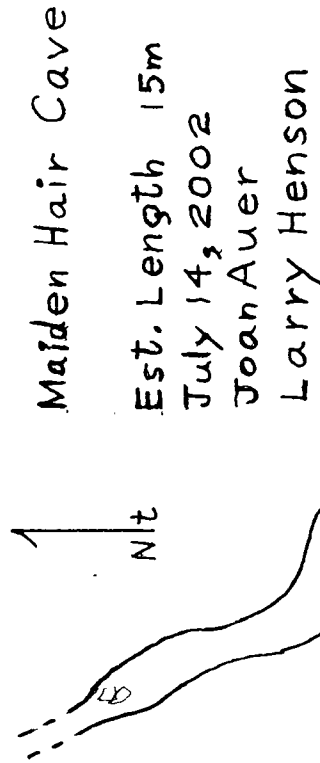 Maiden Hair Cave
Est. Length 15m
July 14, 2002
Joan Auer
Larry Henson
Nt